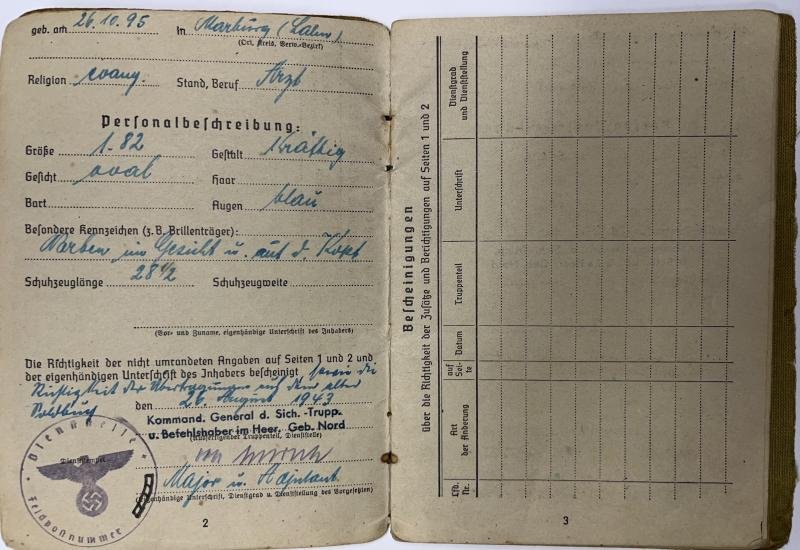 geb. am 26.10.95 in Marburg (Lahn)
(Ort, Kreis, Verw.-Bezirk)
Religion evang. Stand, Beruf Arzt
Personalbeschreibung:
Größe 1.82 Gestalt Kräftig
Gesicht oval Haar
Bart Augen blau
Besondere Kennzeichen (z. B. Brillenträger):
Narben im Gesicht u. auf d. Kopf
Schuhzeuglänge 28½ Schuhzeugweite
(Vor- und Zuname, eigenhändige Unterschrift des Inhabers)
Die Richtigkeit der nicht umrandeten Angaben auf Seiten 1 und 2 und
der eigenhändigen Unterschrift des Inhabers bescheinigt sowie die
Richtigkeit der Übertragungen auf dem alten
Soldbuch den 26. August 1943
Kommand. General d. Sich.-Trupp.
u. Befehlshaber im Heer. Geb. Nord
(Ausfertigender Truppenteil, Dienststelle)
Dienststempel
Major u. Adjutant
(Eigenhändige Unterschrift, Dienstgrad u. Dienststellung des Vorgesetzten)
Dienststelle
Feldpostnummer
2
Bescheinigungen
über die Richtigkeit der Zusätze und Berichtigungen auf Seiten 1 und 2
Lfd. Nr.
Art der Änderung
auf Seite
Datum
Truppenteil
Unterschrift
Dienstgrad und Dienststellung
3